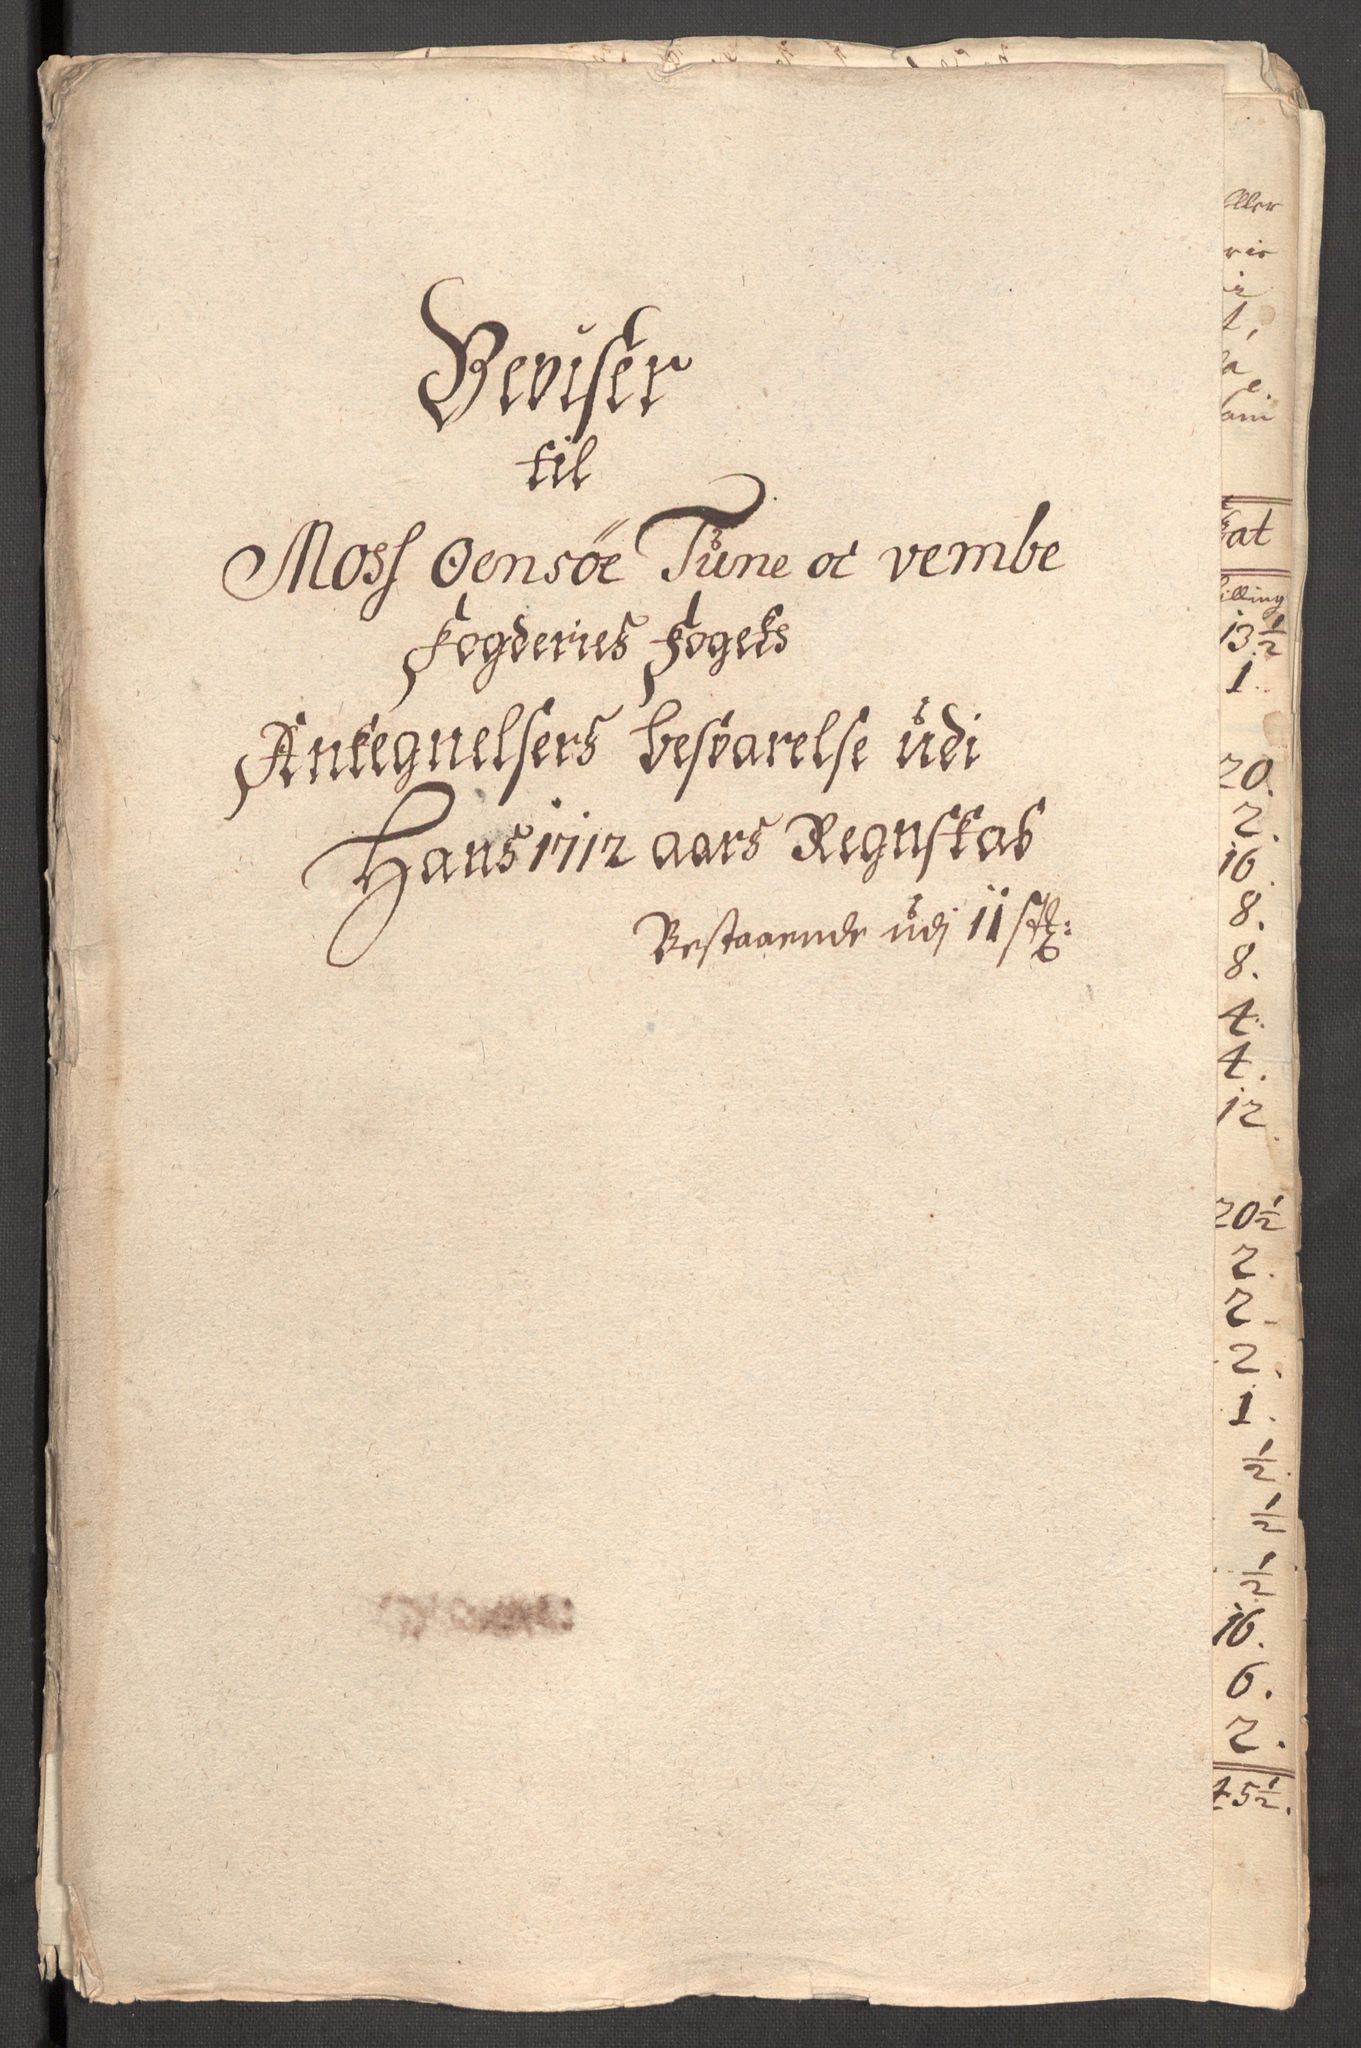 Beviser
til
Moss Oensöe Tune oc vembe
fogderies fogets
Antegnelsers besvarelse udi
Hans 1712 aars Regnskab
Bestaaende udj 11 stk:
ller
at
illing
13 1/2
1.
20.
2.
16.
8.
8.
4.
4.
12.
20 1/2
2.
2.
2.
1.
1/2.
1/2
1/2
16.
6.
2.
45 1/2.